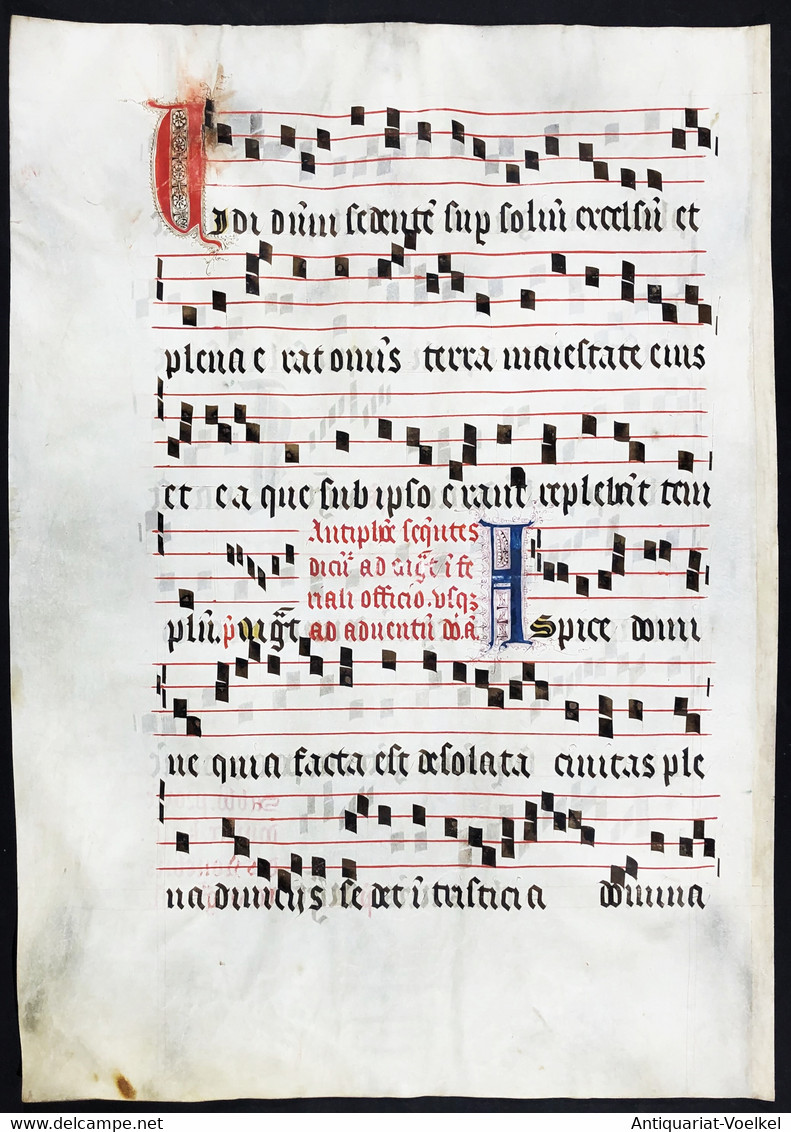 Uidi dūm sedentē sup soliū excelsū et
plena erat omīs terra maiestate eius
et ea que sub ipso erant replebāt tem
plū. p̄ aīgt̄
Antiphe sequētes
dicūt̄ ad aīgt̄ ī fe
riali officio. usqꝫ
ad aduentū dō.ā.
Aspice domi
ne quia facta est desolata ciuitas ple
na diuicijs sedet ī tristicia domina
Antiquariat-Voelkel